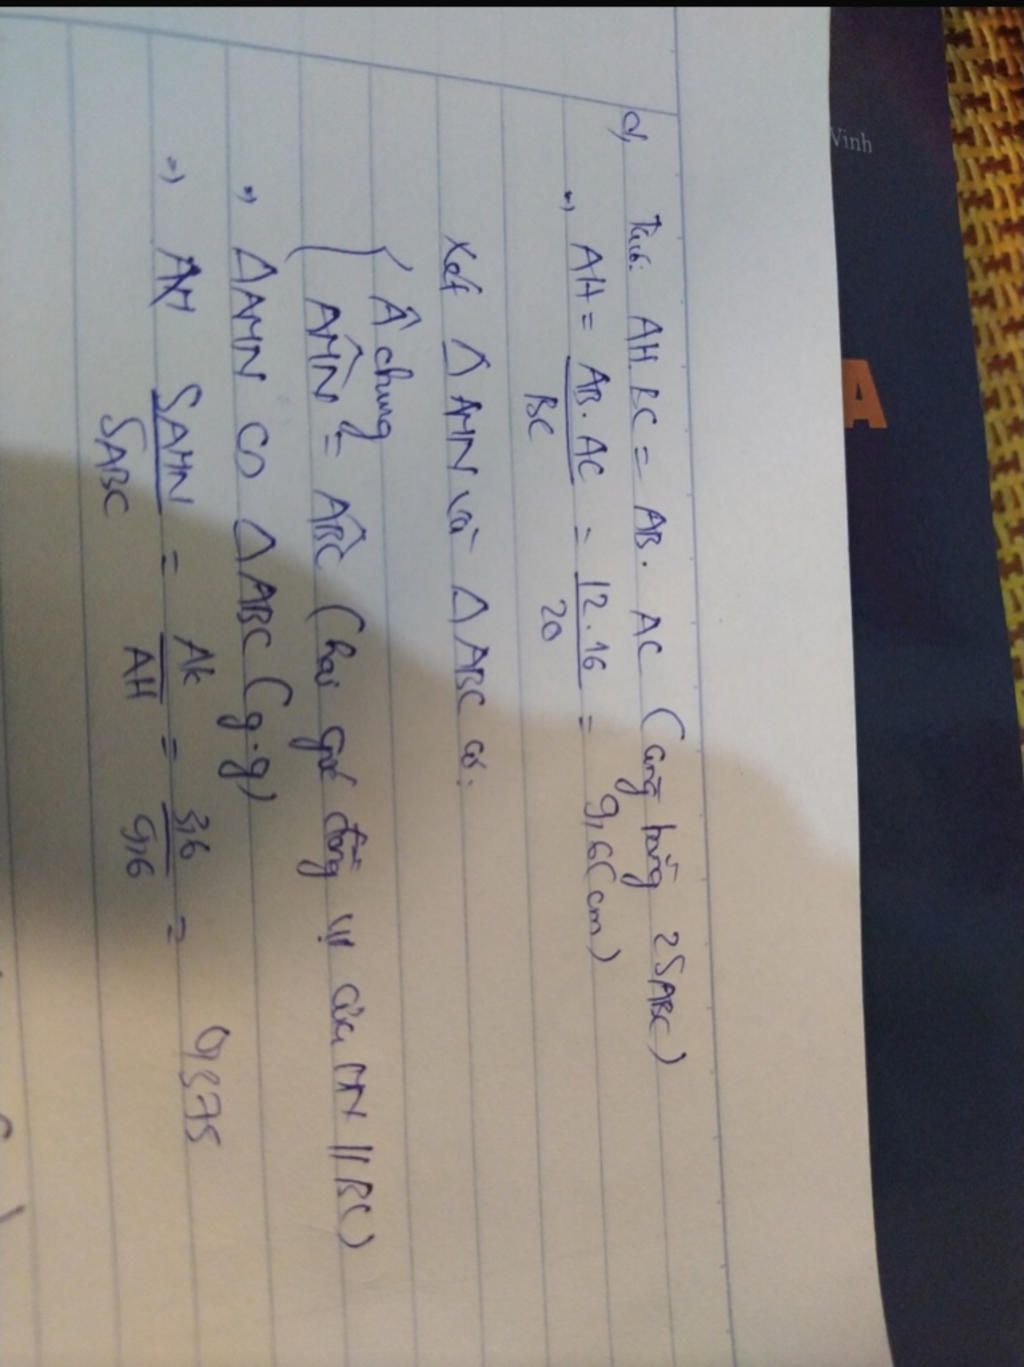 d, Ta có: AH.BC = AB. AC (cùng bằng 2SABC)
=> AH = AB. AC / BC = 12.16 / 20 = 9,6 (cm)
Xét Δ AMN và Δ ABC có:
{ Â chung
AM̂N = AB̂C (hai góc đồng vị của MN // BC)
=> Δ AMN ∽ Δ ABC (g.g)
=> SAMN / SABC = AK / AH = 3,6 / 9,6 = 0,375
Vinh
A